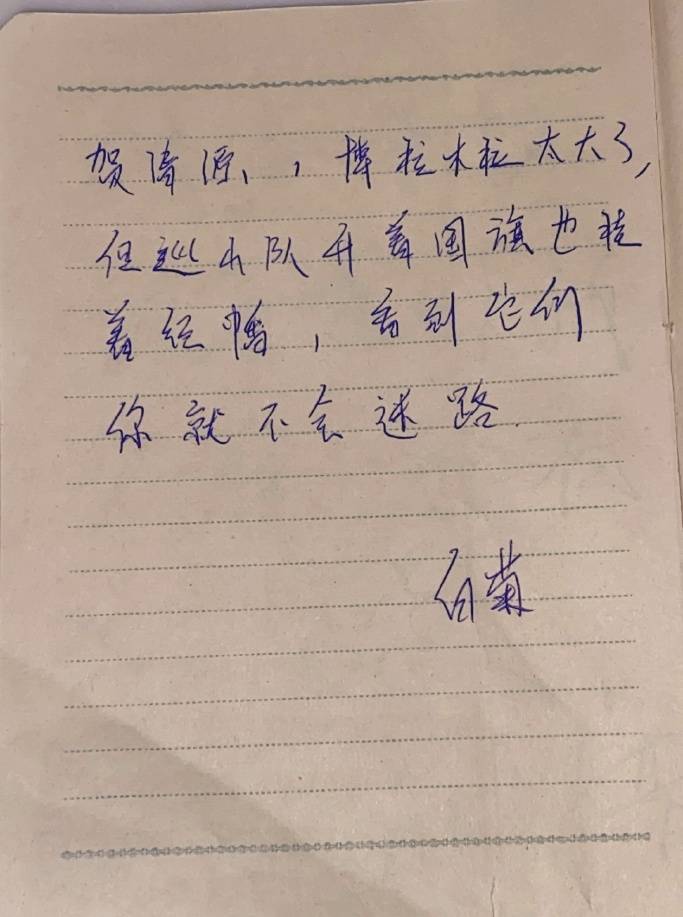 贺清源,,博拉木拉太大了,
但巡山队升着国旗也挂
着经幡,看到它们
你就不会迷路.
白菊